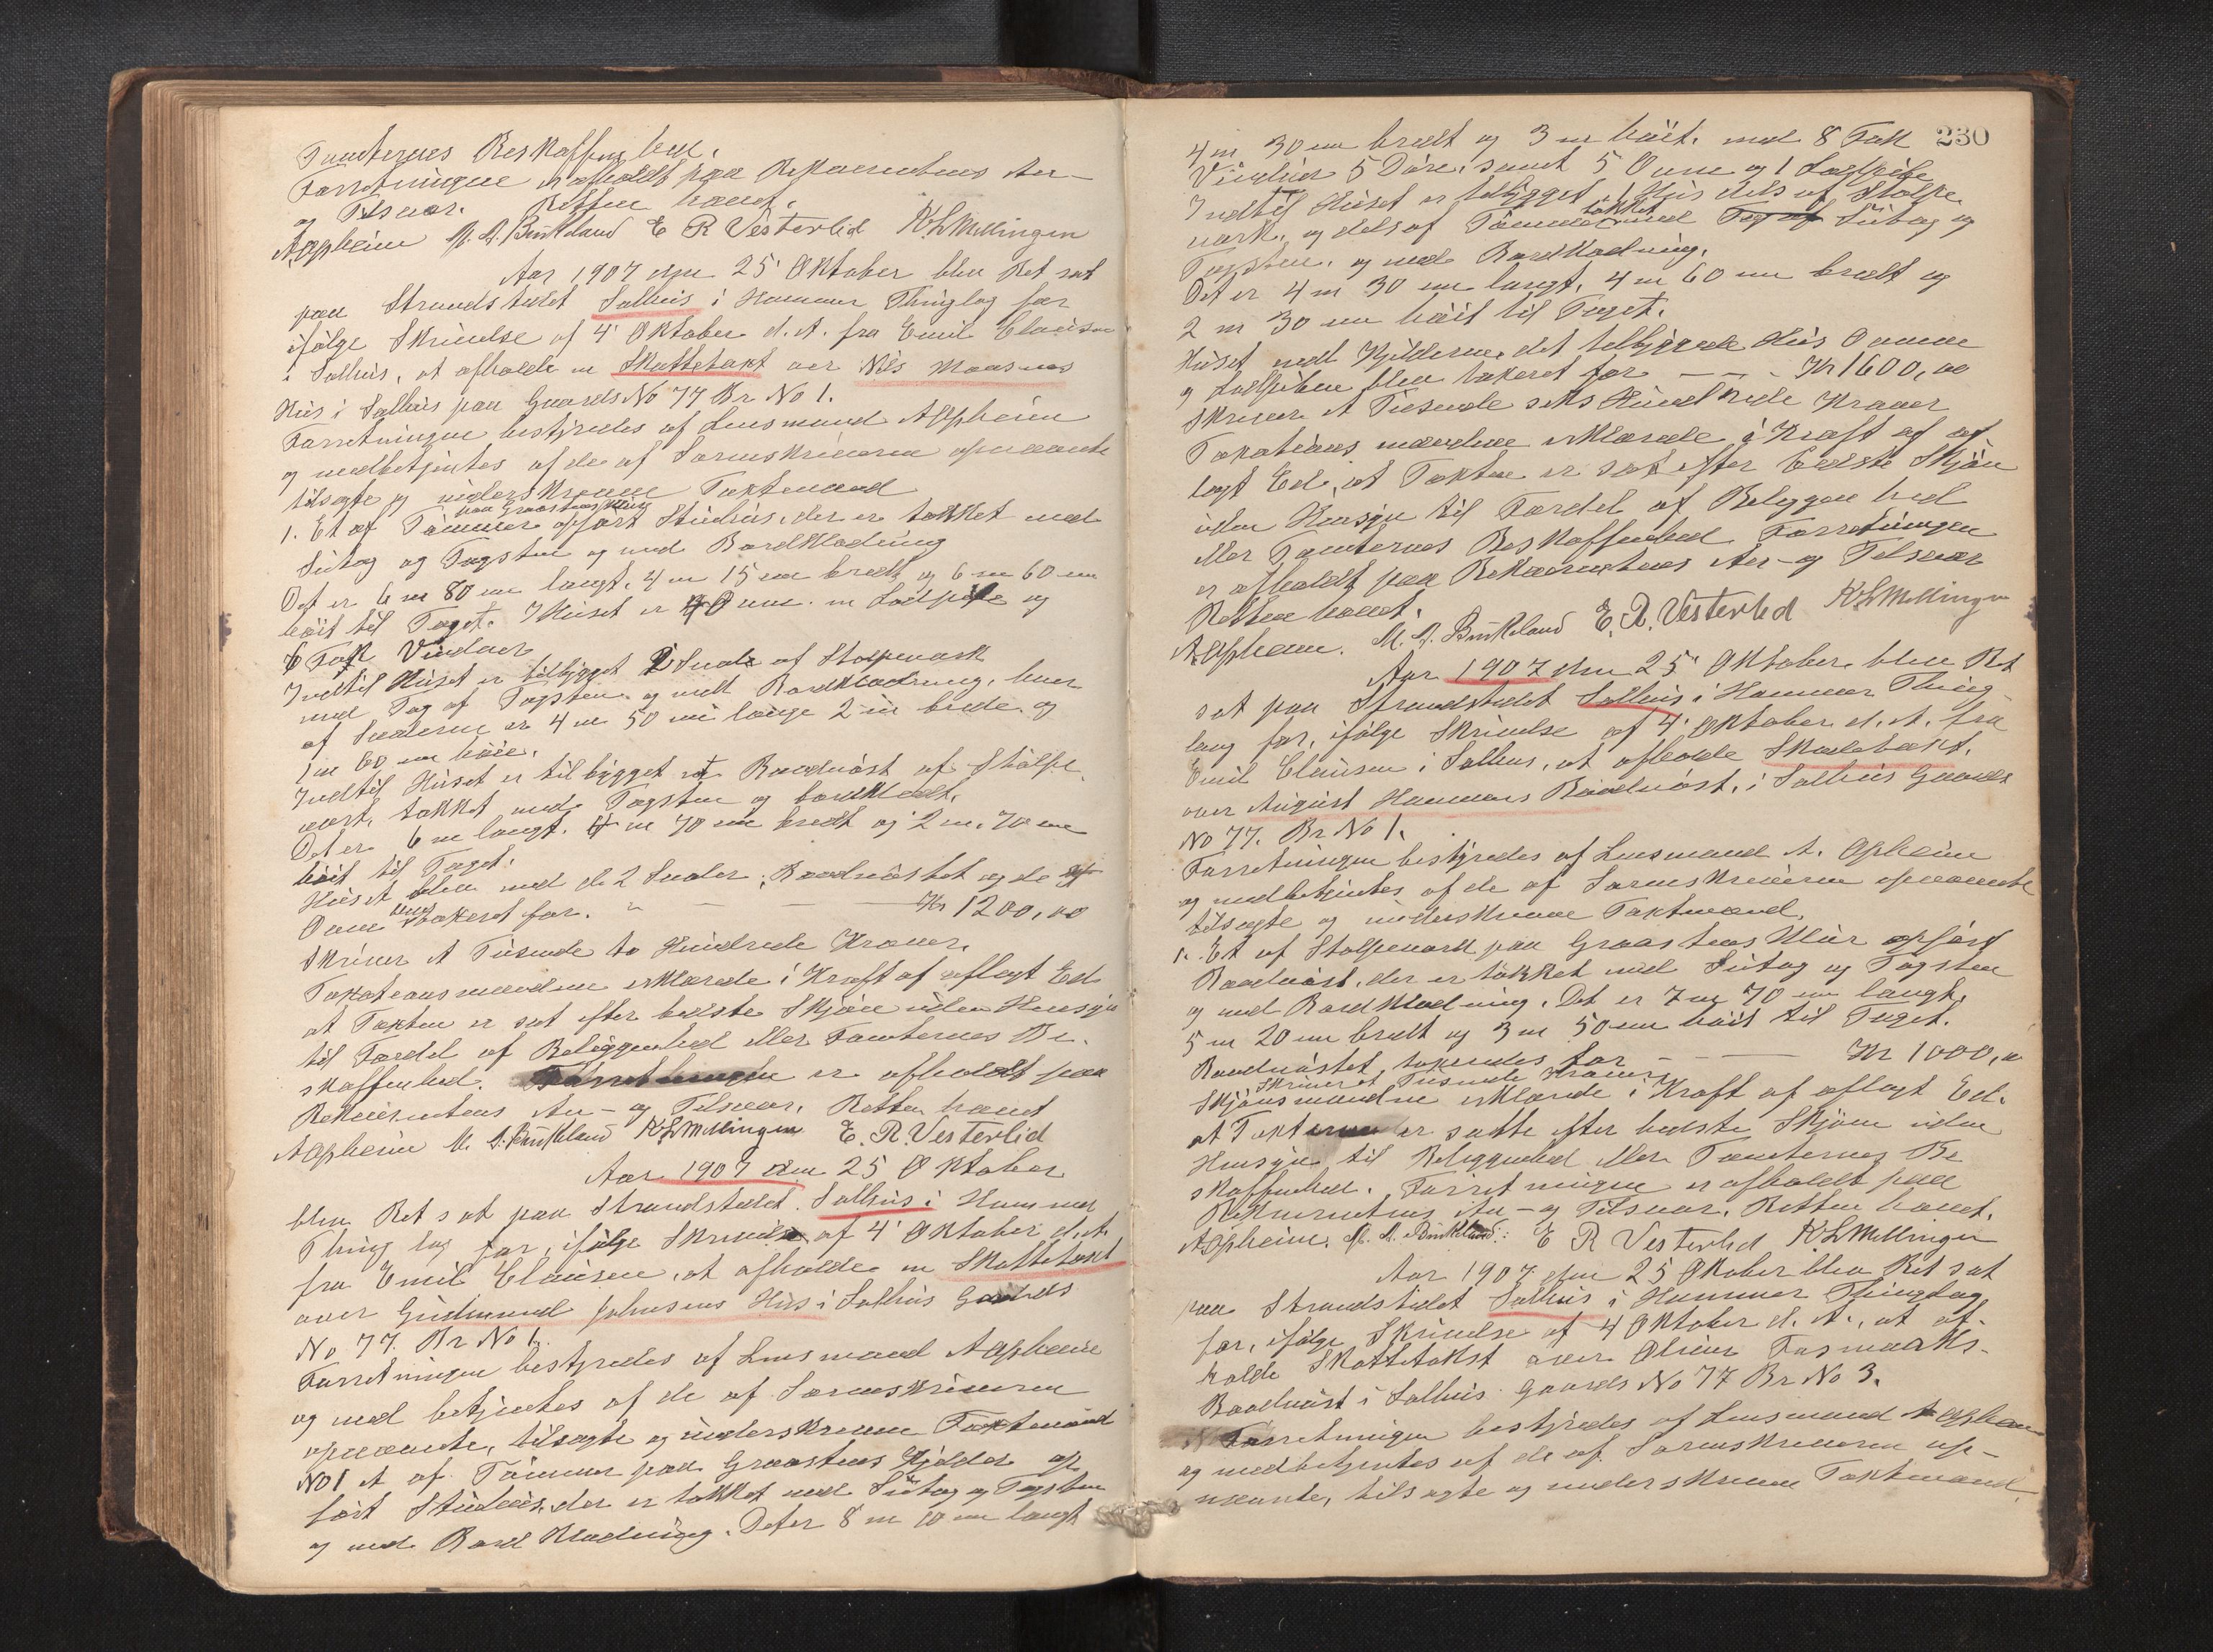 Tomternes Beskaffenhed.
Forretningen er afholdt paa Rekvirentens An-
og Tilsvar. Retten hævet.
AOpheim M. A. Birkeland E R Vesterlid KLMellingen
Aar 1907 den 25' Oktober blev Ret sat
paa Strandstedet Salhus i Hammer Thinglag for
ifølge Skrivelse af 4' Oktober d. A. fra Emil Clausen
i Salhus, at afholde en Skattetaxt over Nils Monsens
Hus i Salhus paa Gaards No 77 Br No 1.
Forretningen bestyredes af Lensmand AOpheim
og medbetjentes af de af Sorenskriveren opnævnte
tilsagte og underskrevne Taxtmænd
paa Graastensmur
1. Et af Tømmer opført Stuehus, der er tækket med
Sutag og Tagsten og med Bordklædning
Det er 6 m 80 cm langt, 4 m 15 cm bredt og 6 m 60 cm
høit til Taget. I Huset er 4 Ovne. en Lodpibe og
6 Fag Vinduer
Indtil Huset er tilbygget 2 Svaler af Stolpeverk
med Tag af Tagsten og med Bordklædning, hver
af Svalerne er 4 m 50 cm lange 2 m brede og
1 m 60 cm høie.
Indtil Huset er tilbygget et Baadnøst af Stolpe
verk, tækket med Tagsten og bordklædt.
Det er 6 m langt. 4 m 70 cm bredt og 2 m. 70 cm
høit til Taget.
Huset blev med de 2 Svaler, Baadnøstet og de
Ovne takeret for. " — — Kr 1200,00
Skriver Et Tusende to Hundrede Kroner.
Taxationsmændene erklærede i Kraft af aflagt Ed
at Taxten er sat efter bedste Skjøn uden Hensyn
til Fordel af Beliggenhed eller Tomternes Be-
skaffenhed. Forretningen er afholdt paa
Rekvirentens An- og Tilsvar. Retten hævet
AOpheim M. A. Birkeland KLMellingen E. R. Vesterlid
Aar 1907 den 25 Oktober
blev Ret sat paa Strandstedet Salhus i Hammer
Thinglag for, ifølge Skrivelse af 4' Oktober d. A.
fra Emil Clausen, at afholde en Skattetaxt
over Gudmund Johnsens Hus i Salhus Gaards
No 77. Br No 1.
Forretningen bestyredes af Lensmand AOpheim
og med betjentes af de af Sorenskriveren
opnævnte, tilsagte og underskrevne Taxtmænd
No 1 et af Tømmer paa Graastens Kjelder op
ført Stuehus, der er tækket med Sutag og Tagsten
og med Bord Klædning. Det er 8 m 10 cm langt
230
4 m 30 cm bredt og 3 m høit. med 8 Fag
Vinduer 5 Døre, samt 5 Ovne og 1 Lodpibe
Indtil Huset er tilbygget 1 Hus dels af Stolpe
værk, og dels af Tømmer tækket med Tag af Sutag og
Tagsten. og med Bordklædning.
Det er 4 m 30 cm langt, 4 m 60 cm bredt og
2 m 30 cm høit til Taget.
Huset med Kjelderne det tilbyggede Hus Ovnene
og Lodpiben blev takeret for — — - Kr 1600,00
Skriver Et Tusende seks Hundrede Kroner
Taxationsmændene erklærede i Kraft af af
lagt Ed, at Taxten er sat efter bedste Skjøn
uden Hensyn til Fordel af Beliggenhed
eller Tomternes Beskaffenhed Forretningen
er afholdt paa Rekvirentens An- og Tilsvar
Retten hævet.
AOpheim. M. A. Birkeland E. R. Vesterlid KLMellingen
Aar 1907 den 25' Oktober. blev Ret
sat paa Strandstedet Salhus i Hammer Thing-
lag for, ifølge Skrivelse af 4' Oktober d. A. fra
Emil Clausen i Salhus, at afholde Skadetaxt,
over August Hammers Baadnøst, i Salhus Gaards
No 77. Br No 1.
Forretningen bestyredes af Lensmand A. Opheim
og medbetjentes af de af Sorenskriveren opnævnte
tilsagte og underskrevne Taxtmænd.
1. Et af Stolpeverk paa Graastens Mur opført
Baadnøst, der er tækket med Sutag og Tagsten
og med Bordklædning. Det er 7 m 70 cm langt.
5 m 20 cm bredt og 3 m 50 cm høit til Taget.
Baadnøstet, taxeredes for - — — Kr 1000,00
Skriver et Tusende Kroner
Skjønsmændene erklærede i Kraft af aflagt Ed.
at Taxterne er satte efter bedste Skjøn uden
Hensyn til Beliggenhed eller Tomternes Be
skaffenhed. Forretningen er afholdt paa
Rekvirentens An- og Tilsvar. Retten hævet.
AOpheim. M. A. Birkeland: E R Vesterlid KLMellingen
Aar 1907 den 25 Oktober blev Ret sat
paa Strandstedet Salhus i Hammer Thinglag
for, ifølge Skrivelse af 4 Oktober d. A., at af-
holde Skattetakst over Oliver Fosmarks-
Baadnøst i Salhus Gaards No 77 Br No 3.
Forretningen bestyredes af Lensmand AOpheim
og medbetjentes af de af Sorenskriveren op-
nævnte, tilsagte og underskrevne Taxtmænd.